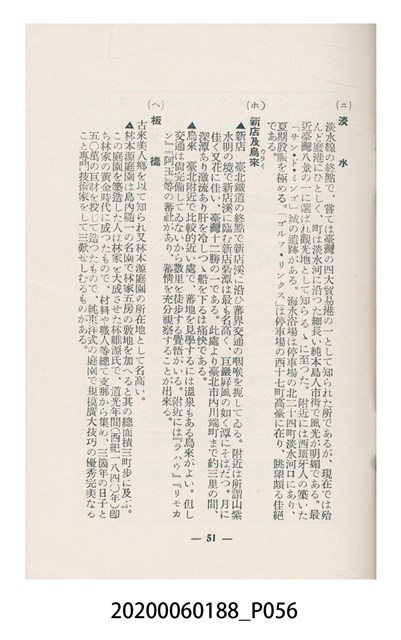 (ニ) 淡水
淡水線の終點で、嘗ては臺灣の四大貿易港の一として知られた所であるが、現在では殆
んど廢港にひとしく、町は淡水河に沿つた細長い純本島人市街で風光が明媚である。最
近臺灣八景の一に選ばれ觀光地として知らるゝに至つた。附近には西班牙人の築いた
「サン・ドミンゴ」城の遺跡がある。海水浴場は停車場の北二十四町淡水河口にあり、
夏期股賑を極める。「ゴルフ・リンクス」は停車場の西十七町高臺に在り、眺望頗る佳絕
である。
(ホ) 新店及烏來
▲新店 臺北鐵道の終點で新店溪に沿ひ蕃界交通の咽喉を扼してゐる。附近は所謂山紫
水明の境で新店溪に臨む新店碧潭は最も名高く、巨巖屛風の如く潭にそばだつ。月に
佳く又花に佳い、臺灣十二勝の一である。此處より臺北市內川端町まで約三里の間、
深潭あり激流あり肝を冷しつゝ船を下るは痛快である。
▲烏來 臺北附近で比較的近い處で、蕃地を見學するには溫泉もある烏來がよい。但し
交通は尙完備してゐないから數里を徒歩する覺悟がいる。附近には『ラハウ』『リモカ
ン』『阿玉』等の蕃社があり、蕃情を充分視察することが出來る。
(ヘ) 板橋
古來美人鄉を以て知られ又林本源庭園の所在地として名高い。
▲林本源庭園は島內隨一の名園で林家五房の敷地を加へると其の總面積三町步に及ぶ。
この庭園を築造した人は林家を大成させた林維源氏で、道光年間(西紀一八四〇年)卽
ち林家の黃金時代に成つたもので、材料や職人等總て支那から集め、三箇年の日子と
五〇萬の巨財を投じて造つたもので、純東洋式の庭園で規模廣大技巧の優秀完美なる
こと專門技術家をして三歎せしむるものがある。
— 51 —
20200060188_P056